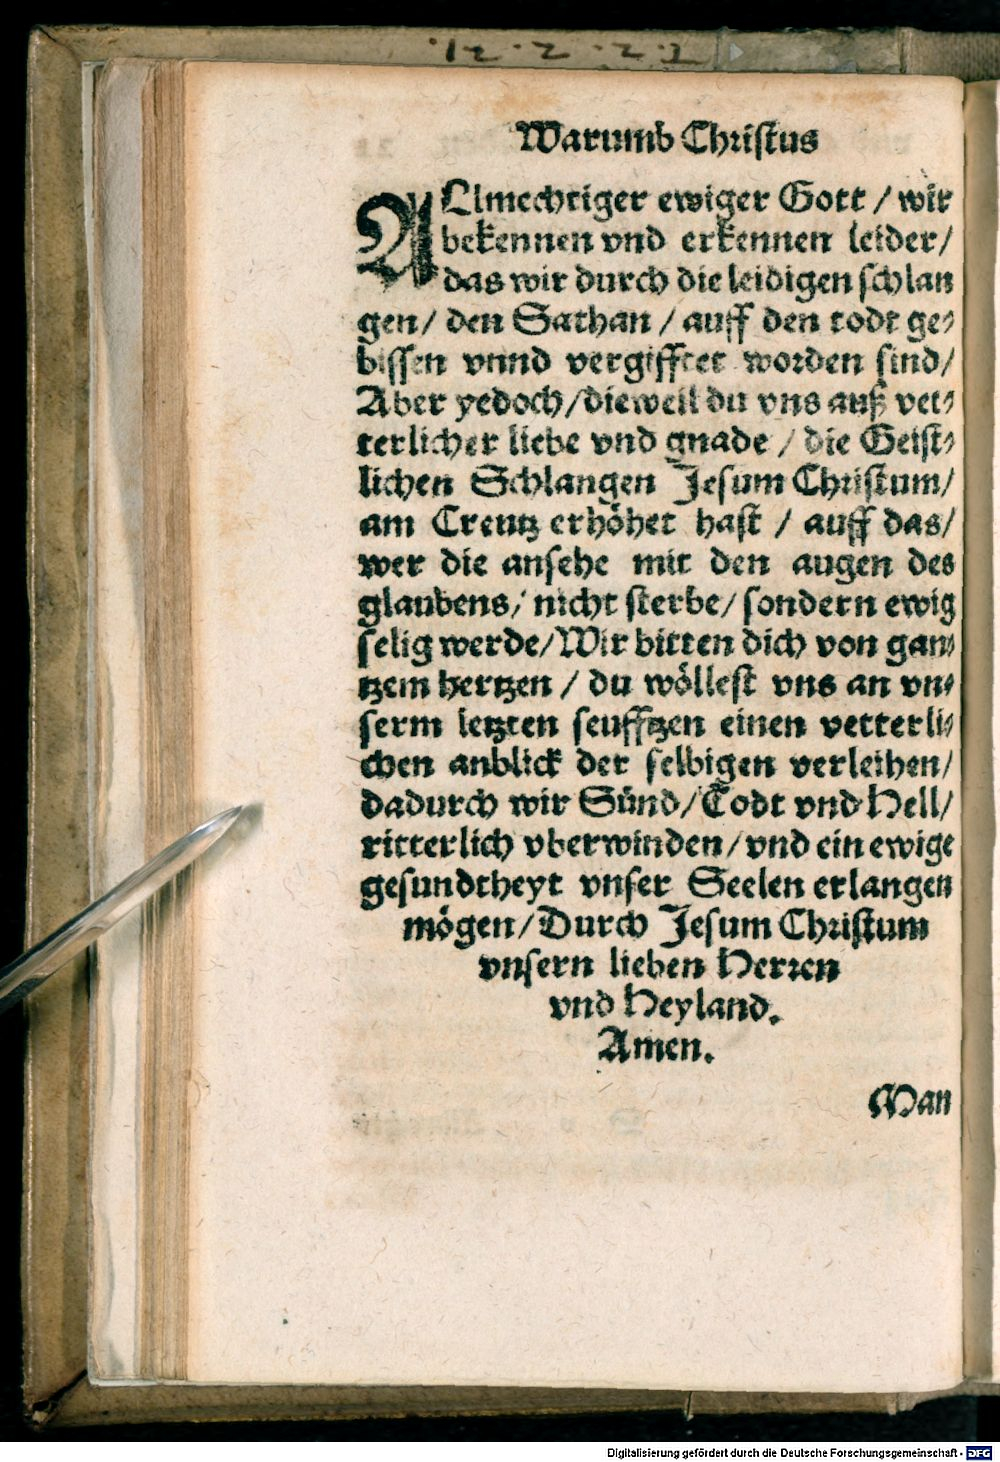 Warumb Christus
ALlmechtiger ewiger Gott / wir
bekennen vnd erkennen leider/
das wir durch die leidigen schlan
gen/ den Sathan / auff den todt ge-
bissen vnnd vergifftet worden sind/
Aber yedoch/dieweil du vns auß vet-
terlicher liebe vnd gnade / die Geist-
lichen Schlangen Jesum Christum/
am Creutz erhöhet hast / auff das/
wer die ansehe mit den augen des
glaubens/ nicht sterbe/ sondern ewig
selig werde/Wir bitten dich von gan-
tzem hertzen / du wöllest vns an vn-
serm letzten seufftzen einen vetterli-
chen anblick der selbigen verleihen/
dadurch wir Sünd/Todt vnd Hell/
ritterlich vberwinden/vnd ein ewige
gesundtheyt vnser Seelen erlangen
mögen/Durch Jesum Christum
vnsern lieben Herren
vnd Heyland.
Amen.
Man
Digitalisierung gefördert durch die Deutsche Forschungsgemeinschaft - DFG